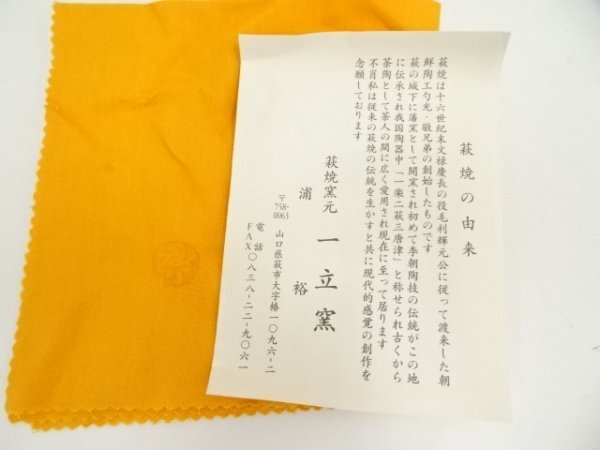 萩焼の由来
萩焼は十六世紀末文禄慶長の役毛利輝元公に従って渡来した朝
鮮陶工勺光・敬兄弟の創始したものです
萩の城下に藩窯として開窯され初めて李朝陶技の伝統がこの地
に伝承され我国陶器中「一楽二萩三唐津」と称せられ古くから
茶陶として茶人の間に広く愛用され現在に至って居ります
不肖私は従来の萩焼の伝統を生かすと共に現代的感覚の創作を
念願しております
萩焼窯元 一立窯
浦 裕
〒758-0063 山口県萩市大字椿一〇九六-二
電話
FAX〇八三八-二二-九〇六一